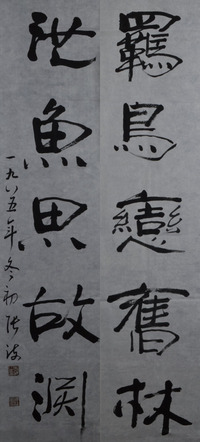 羈鳥戀舊林
池魚思故渊
一九八五年冬初